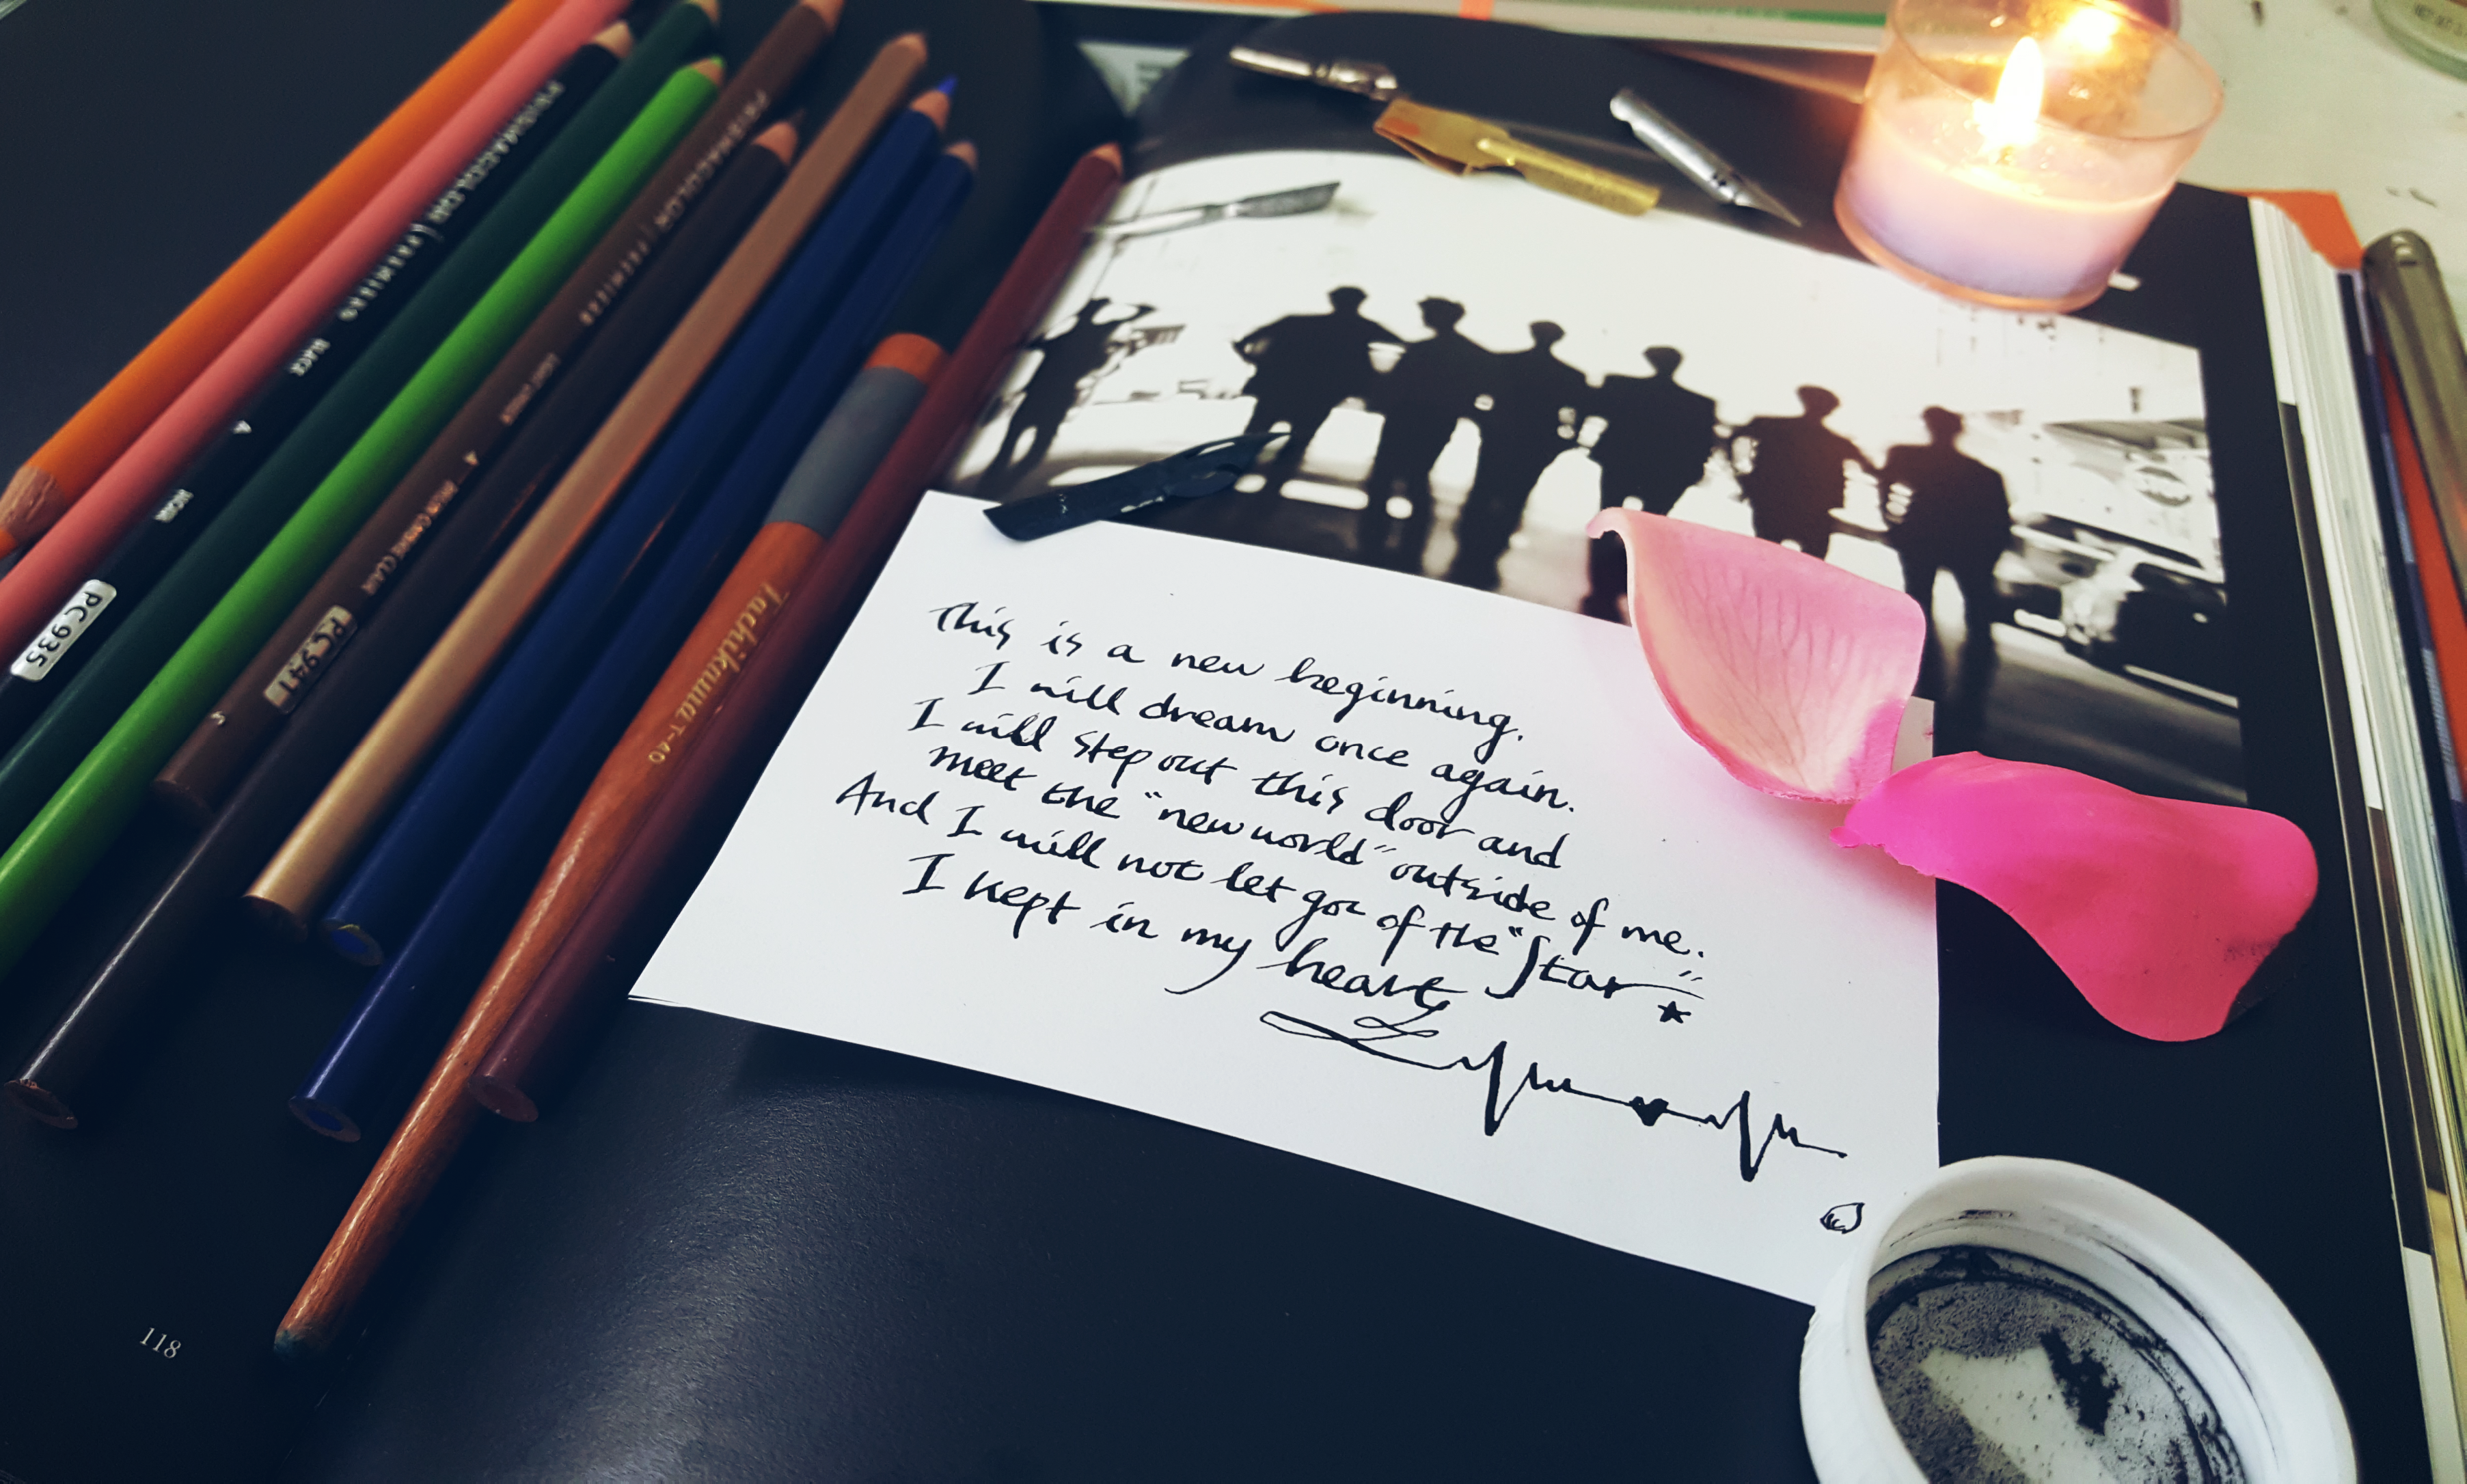 PRISMACOLOR PREMIER
BLACK
NOIR
PC935
PRISMACOLOR PREMIER
LIGHT UMBER
PC941
Tachikawa T-40
This is a new beginning.
I will dream once again.
I will step out this door and
meet the "new world" outside of me.
And I will not let go of the "Star"
I kept in my heart
118